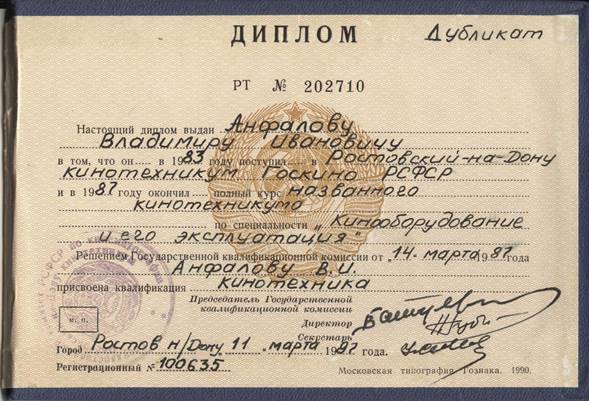 ДИПЛОМ Дубликат
РТ № 202710
Настоящий диплом выдан Анфалову
Владимиру Ивановичу
в том, что он в 1983 году поступил в Ростовский-на-Дону
кинотехникум Госкино РСФСР
и в 1987 году окончил полный курс названного
кинотехникума
по специальности „Кинооборудование
и его эксплуатация"
Решением Государственной квалификационной комиссии от "14" марта 1987 года
Анфалову В.И.
присвоена квалификация кинотехника
Председатель Государственной
квалификационной комиссии
Директор
Секретарь
м. п.
Город Ростов н/Дону, 11 марта 1987 года.
Регистрационный № 100635
Московская типография Гознака. 1990.